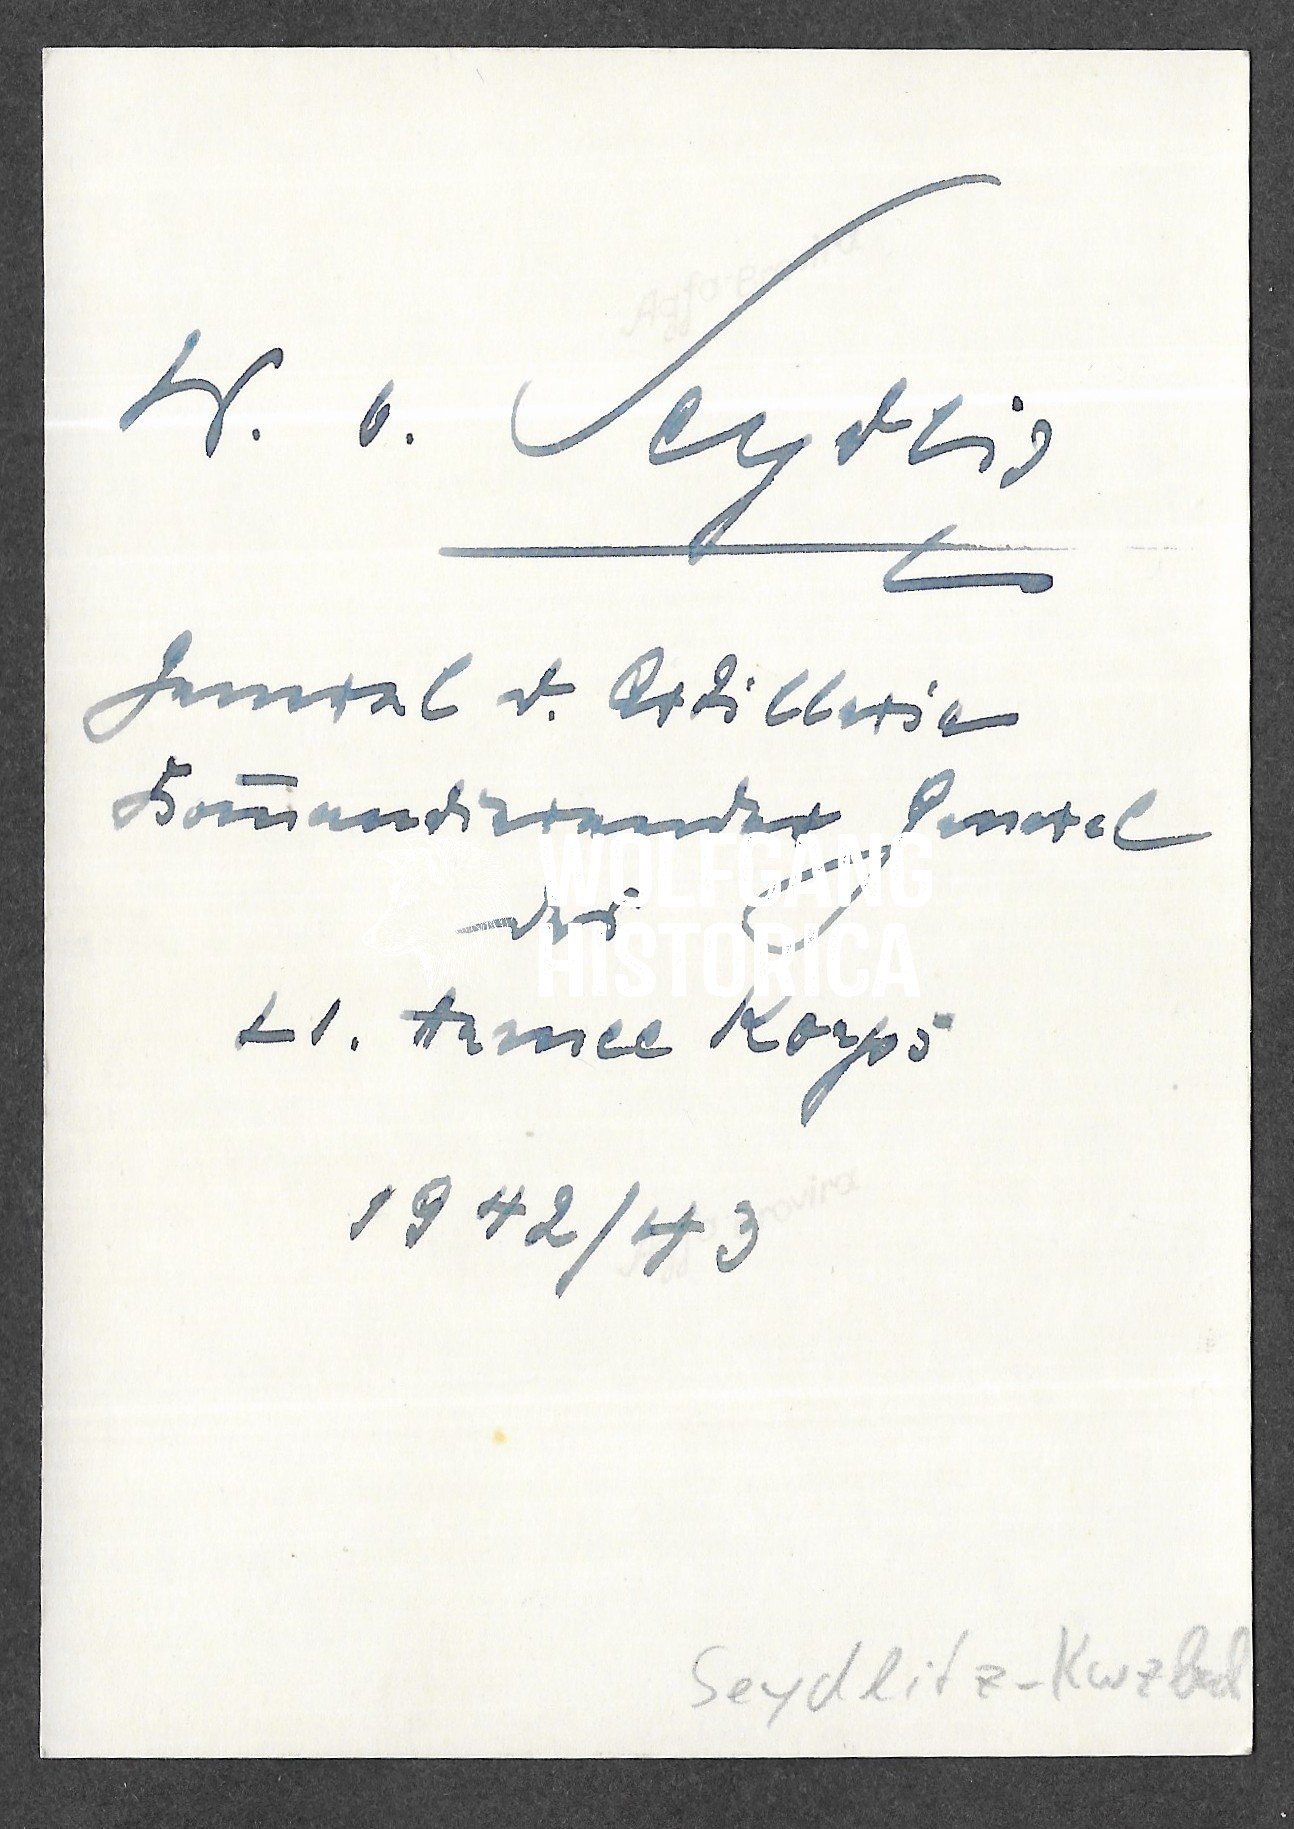 W. v. Seydlitz
General d. Artillerie
Kommandierender General
des
LI. Armee Korps
1942/43
WOLFGANG
HISTORICA
Seydlitz-Kurzbach